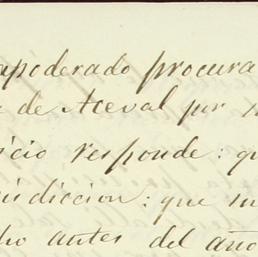 apoderado procura
de Aceval por
icio responde: qu
isdiccion: que
antes del año